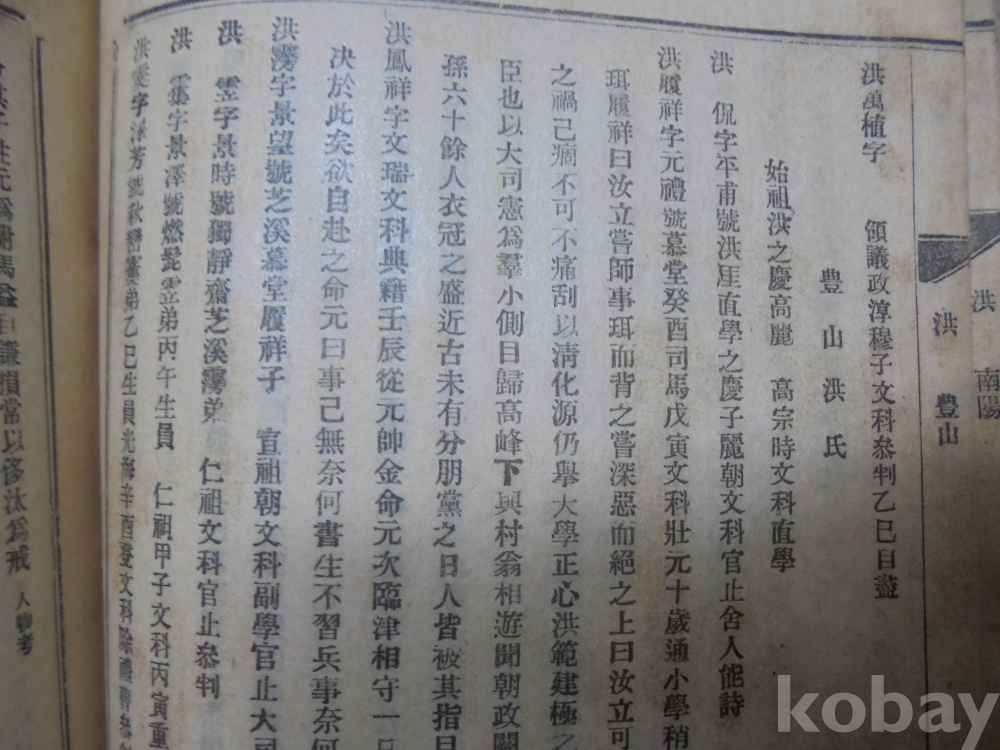 洪 南陽
洪 豊山
洪萬植字 領議政淳穆子文科叅判乙巳自盡
豊山洪氏
始祖洪之慶高麗 高宗時文科直學
洪 侃字平甫號洪厓直學之慶子麗朝文科官止舍人能詩
洪履祥字元禮號慕堂癸酉司馬戊寅文科壯元十歲通小學稍
珥履祥曰汝立嘗師事珥而背之嘗深惡而絕之上曰汝立可
之禍己痼不可不痛刮以淸化源仍擧大學正心洪範建極之
臣也以大司憲爲羣小側目歸高峰下與村翁相遊聞朝政闕
孫六十餘人衣冠之盛近古未有分朋黨之日人皆被其指目
洪鳳祥字文瑞文科典籍壬辰從元帥金命元次臨津相守一
决於此矣欲自赴之命元曰事己無奈何書生不習兵事奈何
洪霶字景望號芝溪慕堂履祥子 宣祖朝文科副學官止大司
洪 霙字景時號獨靜齋芝溪霶弟 仁祖文科官止叅判
洪 䨏字景澤號燃髭霙弟丙午生員 仁祖甲子文科丙寅重
弟乙巳生員光海辛酉登文科
姓元爲駙馬 自謙損常以侈汰爲戒 人物考
kobay